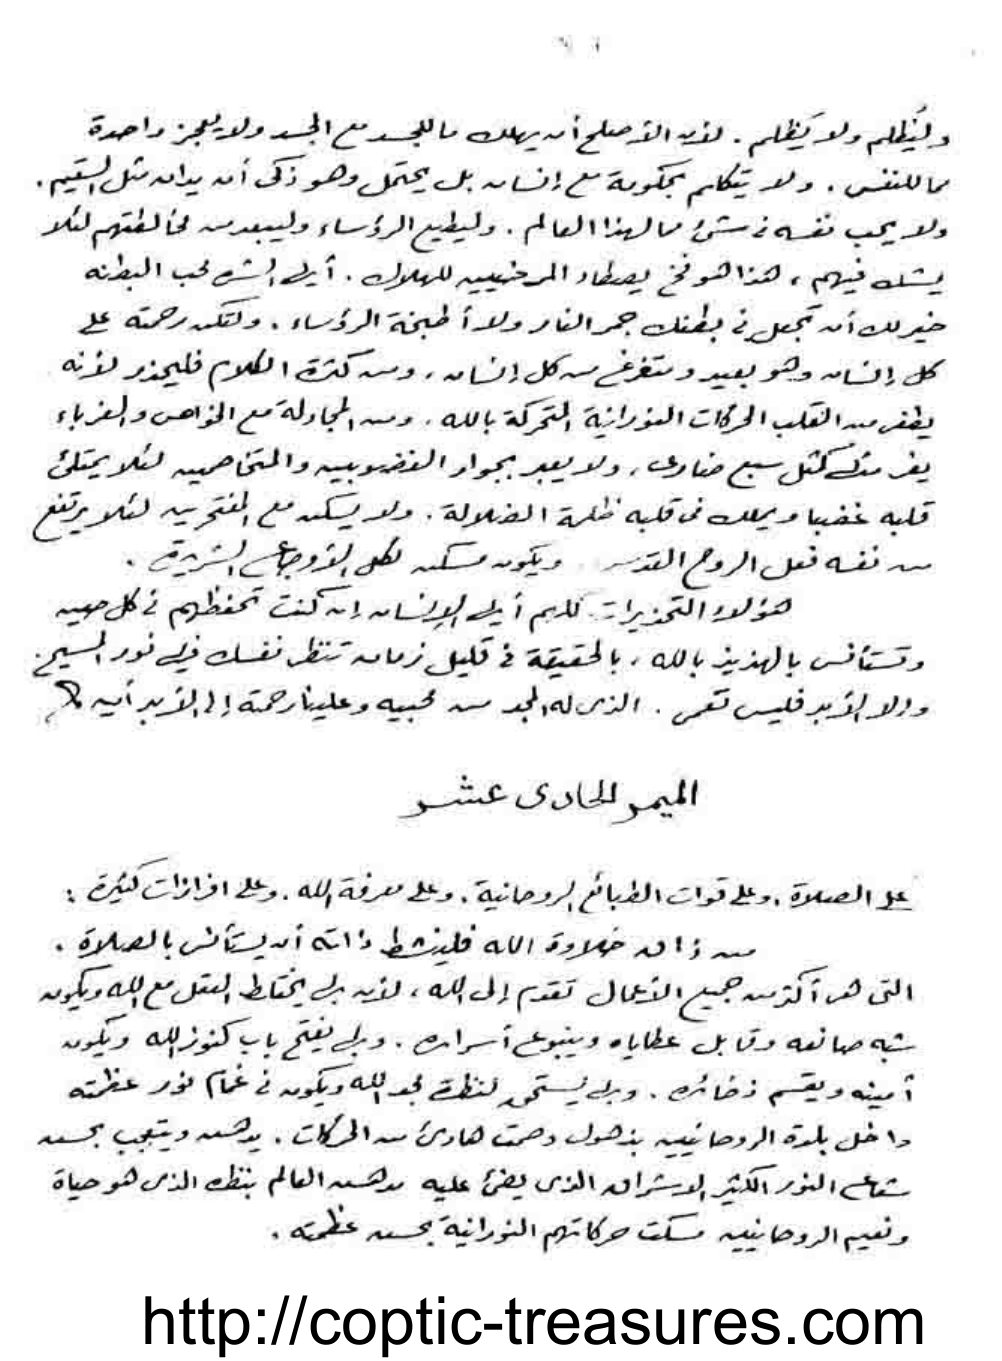 وليُظلم ولا يَظلم . لأن الأصلح أن يهلك ما للجسد مع الجسد ولا يعجز واحدة
مما للنفس . ولا يتكلم بحكومة مع إنسان بل يحتمل وهو ذكى أن يدان مثل السقيم .
ولا يحب نفسه فى شئ مما لهذا العالم . وليطيع الرؤساء وليبعد من مخالفتهم لئلا
يشك فيهم ، هذا هو فخ يصطاد المرخيين للهلاك . أيها الشره محب البطنه
خير لك أن تجعل فى بطنك جمر النار ولا أطبخة الرؤساء . ولتكن رحمته على
كل إنسان وهو بعيد ومتفرغ من كل إنسان . ومن كثرة الكلام فليحذر لأنه
يطفى من القلب الحركات النورانية المتحركة بالله . ومن المجادلة مع الخواص والغرباء
يفر منك كمثل سبع ضارى . ولا يعبر بجوار الغضوبيين والمتخاصمين لئلا يمتلئ
قلبه غضبا ويملك فى قلبه ظلمة الضلالة . ولا يسكن مع المفتخرين لئلا يرتفع
من نفسه فعل الروح القدس . ويكون مسكن لكل الأوجاع الشريرة .
هؤلاء التحذيرات كلهم أيها الإنسان إن كنت تحفظهم فى كل حين
وتستأنس بالهذيذ بالله ، بالحقيقة فى قليل زمان تنظر نفسك فيها نور المسيح .
وإلا الأبد فليس تعمى . الذى له المجد من محبيه وعلينا رحمته إلى الأبد أمين
الميمر الحادى عشر
على الصلاة . وعلى قوات الطبائع الروحانية . وعلى معرفة الله . وعلى افرازات كثيرة :
من ذاق حلاوة الله فلينشط ذاته أن يستأنس بالصلاة .
التى هى أكثر من جميع الأعمال تقدم إلى الله ، لأن بها يختلط العقل مع الله ويكون
شبه صانعه وقابل عطاياه وينبوع أسراره . وبها يفتح باب كنوز الله ويكون
أمينه ويقسم ذخائره . وبها يستحق لنظرة مجد الله ويكون فى غمام نور عظمته
داخل بلدة الروحانيين بذهول وصمت هادئ من الحركات . يدهش ويتعجب بحسن
شعاع النور الكثير الاشراق الذى يضئ عليه مدهش العالم بنظره الذى هو حياة
ونعيم الروحانيين مسكت حركاتهم النورانية بحسن عظمته .
http://coptic-treasures.com